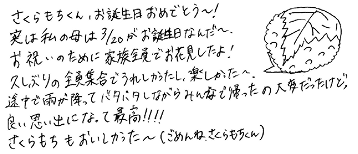 さくらもちくん、お誕生日おめでとう〜!
実は私の母は3/20がお誕生日なんだ〜。
お祝いのために家族全員でお花見したよ!
久しぶりの全員集合でうれしかったし、楽しかった〜。
途中で雨が降ってバタバタしながらみんなで帰ったの大変だったけど、
良い思い出になって最高!!!!
さくらもちもおいしかった〜(ごめんね、さくらもちくん)